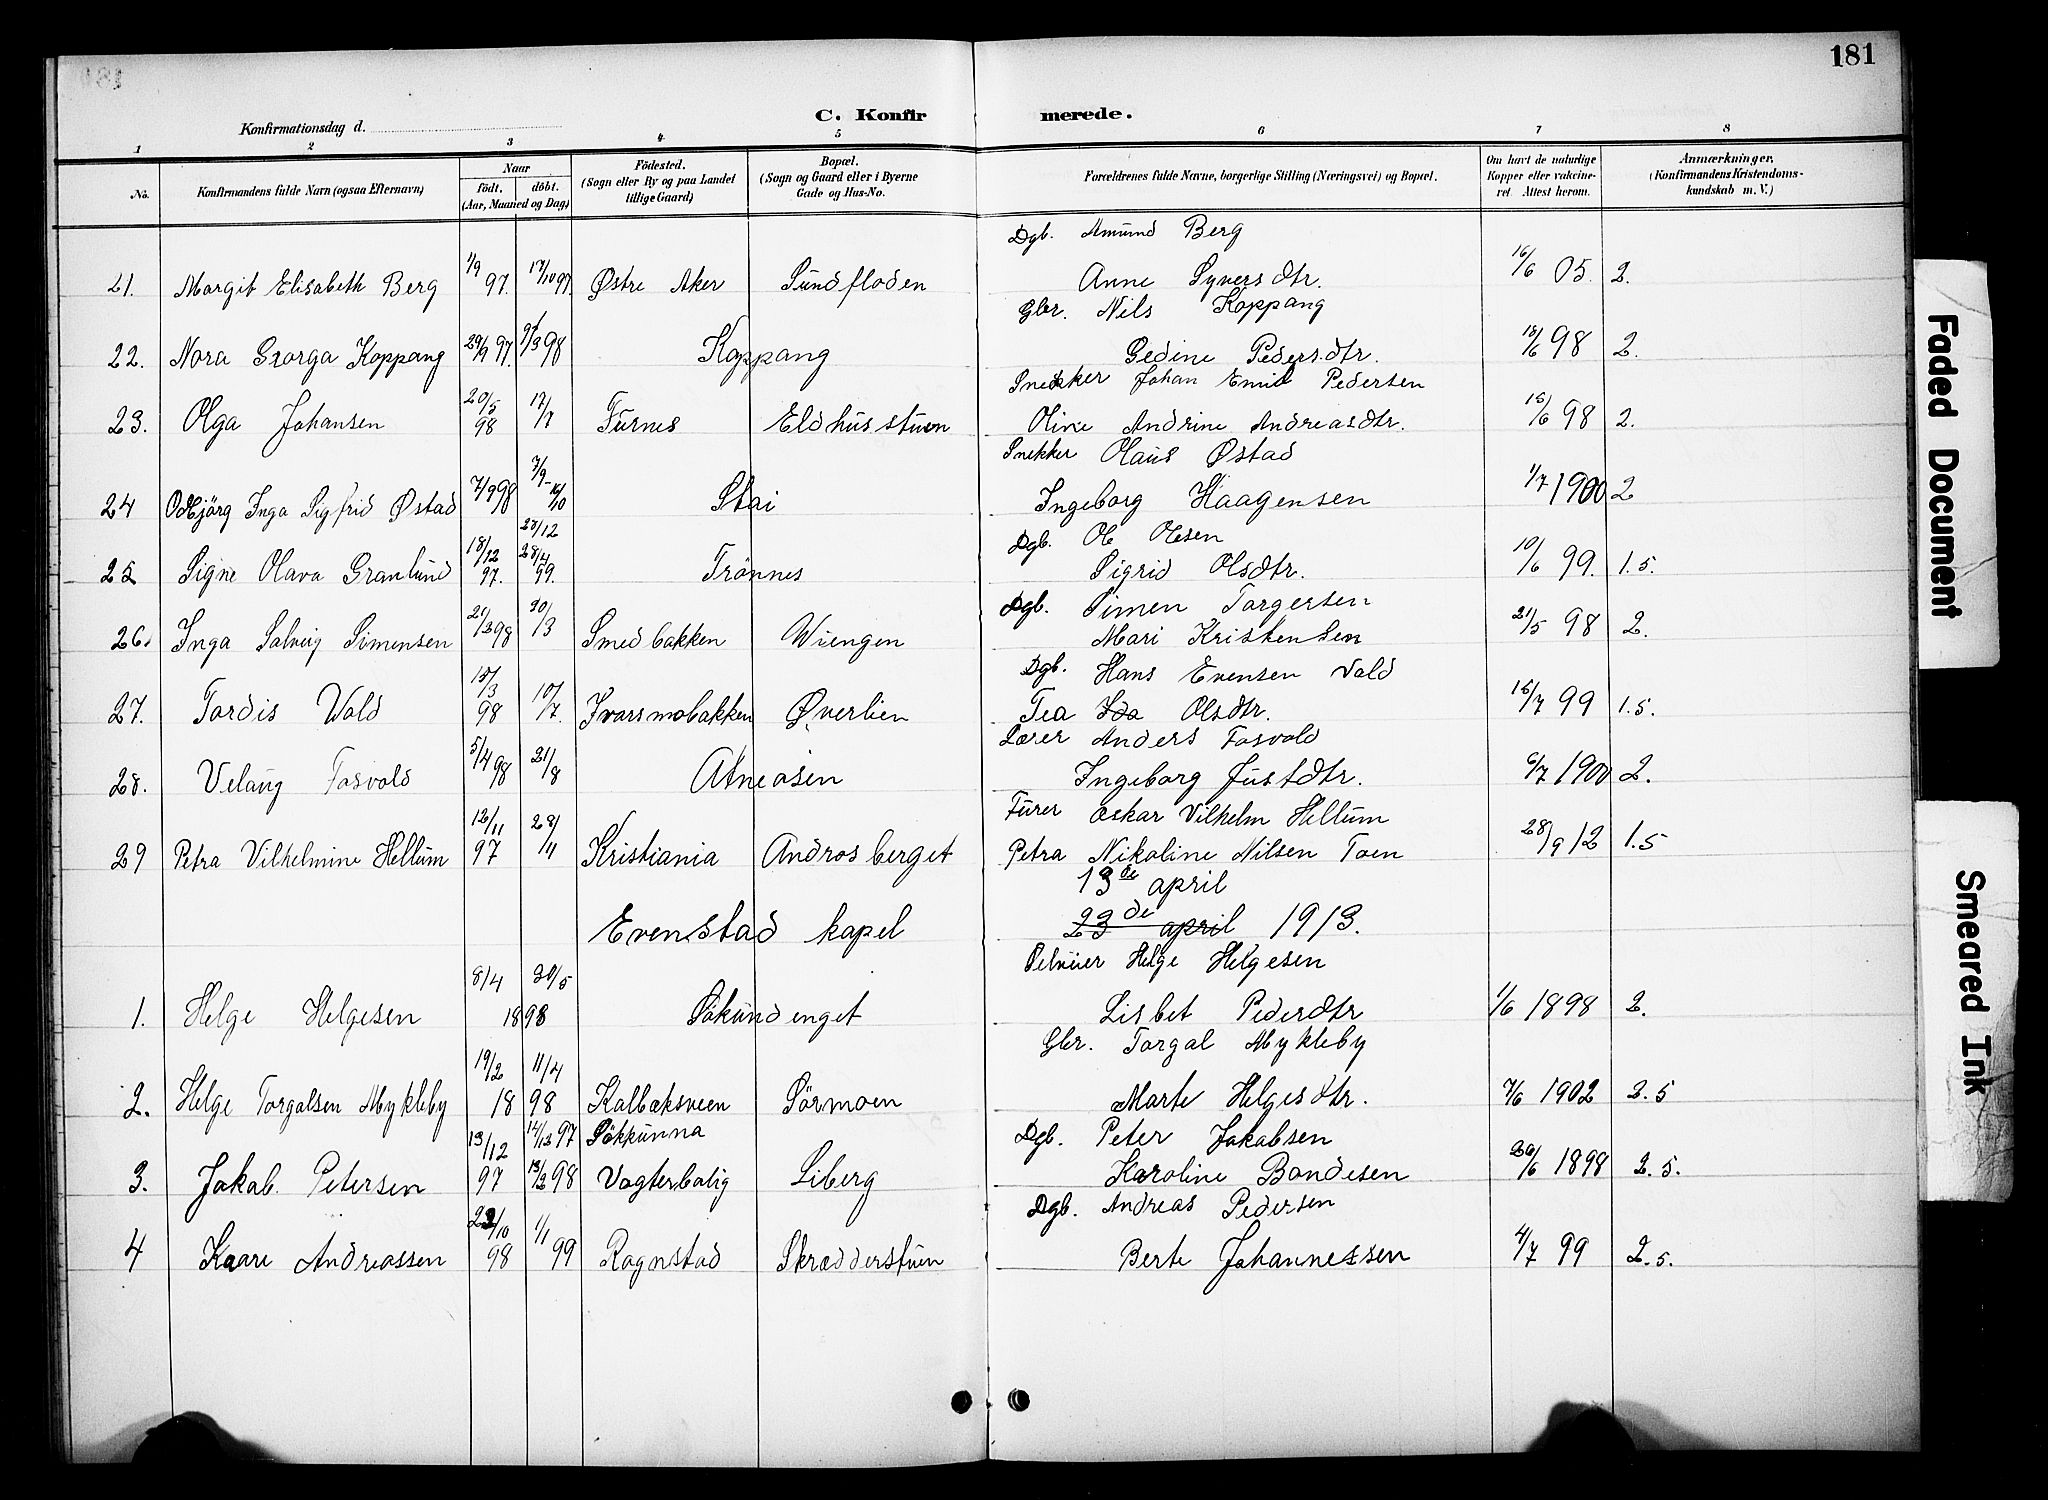 181
C. Konfirmerede.
Konfirmationsdag d.
1 2 3 4 5 6 7 8
No.
Konfirmandens fulde Navn (ogsaa Efternavn)
Naar
født. døbt.
(Aar, Maaned og Dag)
Födested.
(Sogn eller By og paa Landet
tillige Gaard)
Bopæl.
(Sogn og Gaard eller i Byerne
Gade og Hus-No.
Forældrenes fulde Navne, borgerlige Stilling (Næringsvei) og Bopæl.
Om havt de naturlige
Kopper eller vakcine-
ret. Attest herom.
Anmærkninger.
(Konfirmandens Kristendoms-
kundskab m. V.)
Dgb. Amund Berg
21. Margit Elisabeth Berg 1/9 97. 17/10 97 Østre Aker Sundfloden Anne Syversdtr. 16/6 05. 2.
Gbr. Nils Koppang
22. Nora Georga Koppang 29/9 97. 9/3 98 Koppang Gedine Pedersdtr. 18/6 98 2.
Snekker Johan Emil Pedersen
23. Olga Johansen 20/5 98 17/7 Furnes Eldhusstuen Oline Andrine Andreasdtr. 18/6 98 2.
Snekker Olaus Østad
24 Odbjörg Inga Sigfrid Østad 7/9 98 7/9 - 16/10 Stai Ingeborg Haagensen 1/7 1900 2
Dgb. Ole Olesen
25 Signe Olava Granlund 18/12 97. 28/12 28/4 99. Trönnes Sigrid Olsdtr. 10/6 99. 1.5.
Dgb. Simen Torgersen
26. Inga Solveig Simensen 21/2 98 30/3 Smedbakken Wiengen Mari Kristensen 21/5 98 2.
Dgb. Hans Evensen Vold
27. Tordis Vold 15/3 98 10/7. Ivarsmobakken Øverlien Tea Ida Olsdtr. 18/7 99 1.5.
Lærer Anders Fosvold
28. Velaug Fosvold 5/4 98 21/8 Atneosen Ingeborg Justdtr. 6/7 1900 2.
Furer Oskar Vilhelm Hellum
29 Petra Vilhelmine Hellum 12/11 97 28/4 Kristiania Androsberget Petra Nikoline Nilsen Toen 28/9 12 1.5
13de april
Evenstad kapel 23de april 1913.
Selveier Helge Helgesen
1. Helge Helgesen 8/4 30/5 1898 Søkundenget Lisbet Pedersdtr 1/6 1898 2.
Gbr. Torgal Mykleby
2. Helge Torgalsen Mykleby 19/2 11/4 1898 Kalbæksveen Sörmoen Marte Helgesdtr. 7/6 1902 2.5
Dgb. Peter Jakobsen
3. Jakob Petersen 13/12 97 14/12 97 13/2 98 Søkkunna Vogterbolig Liberg Karoline Bondesen 26/6 1898 2.5.
Dgb. Andreas Pedersen
4 Kaare Andreassen 22/10 98 1/1 99 Rognstad Skrædderstuen Berte Johannessen 4/7 99 2.5.
Faded Document
Smeared Ink